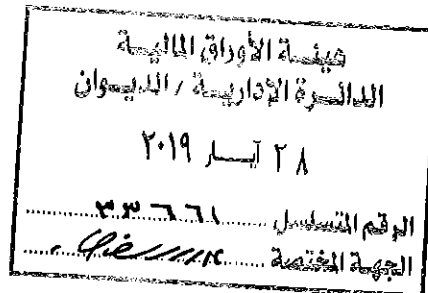 هيئة الأوراق المالية
الدائرة الإدارية / الديوان
٢٨ آيار ٢٠١٩
الرقم المتسلسل ٣٣٦٦١
الجهة المختصة